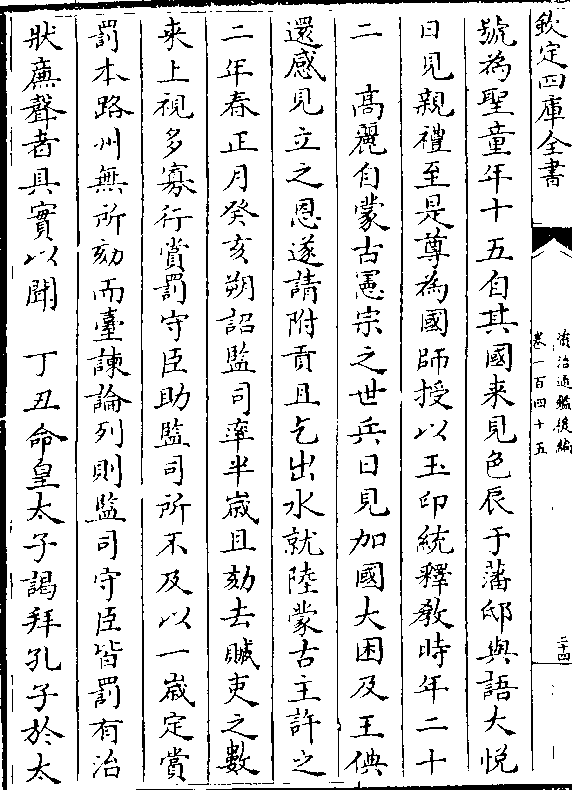 欽定四庫全書
資治通鑑後編
卷一百四十五
二十四
號為聖童年十五自其國来見色辰于藩邸與語大悅
日見親禮至是尊為國師授以玉印統釋教時年二十
二　髙麗自蒙古憲宗之世兵日見加國大困及王倎
還感見立之恩遂請附貢且乞出水就陸蒙古主許之
二年春正月癸亥朔詔監司率半嵗具劾去贓吏之數
来上視多寡行賞罰守臣助監司所不及以一嵗定賞
罰本路州無所劾而臺諫論列則監司守臣皆罰有治
狀亷聲者具實以聞　丁丑命皇太子謁拜孔子於太